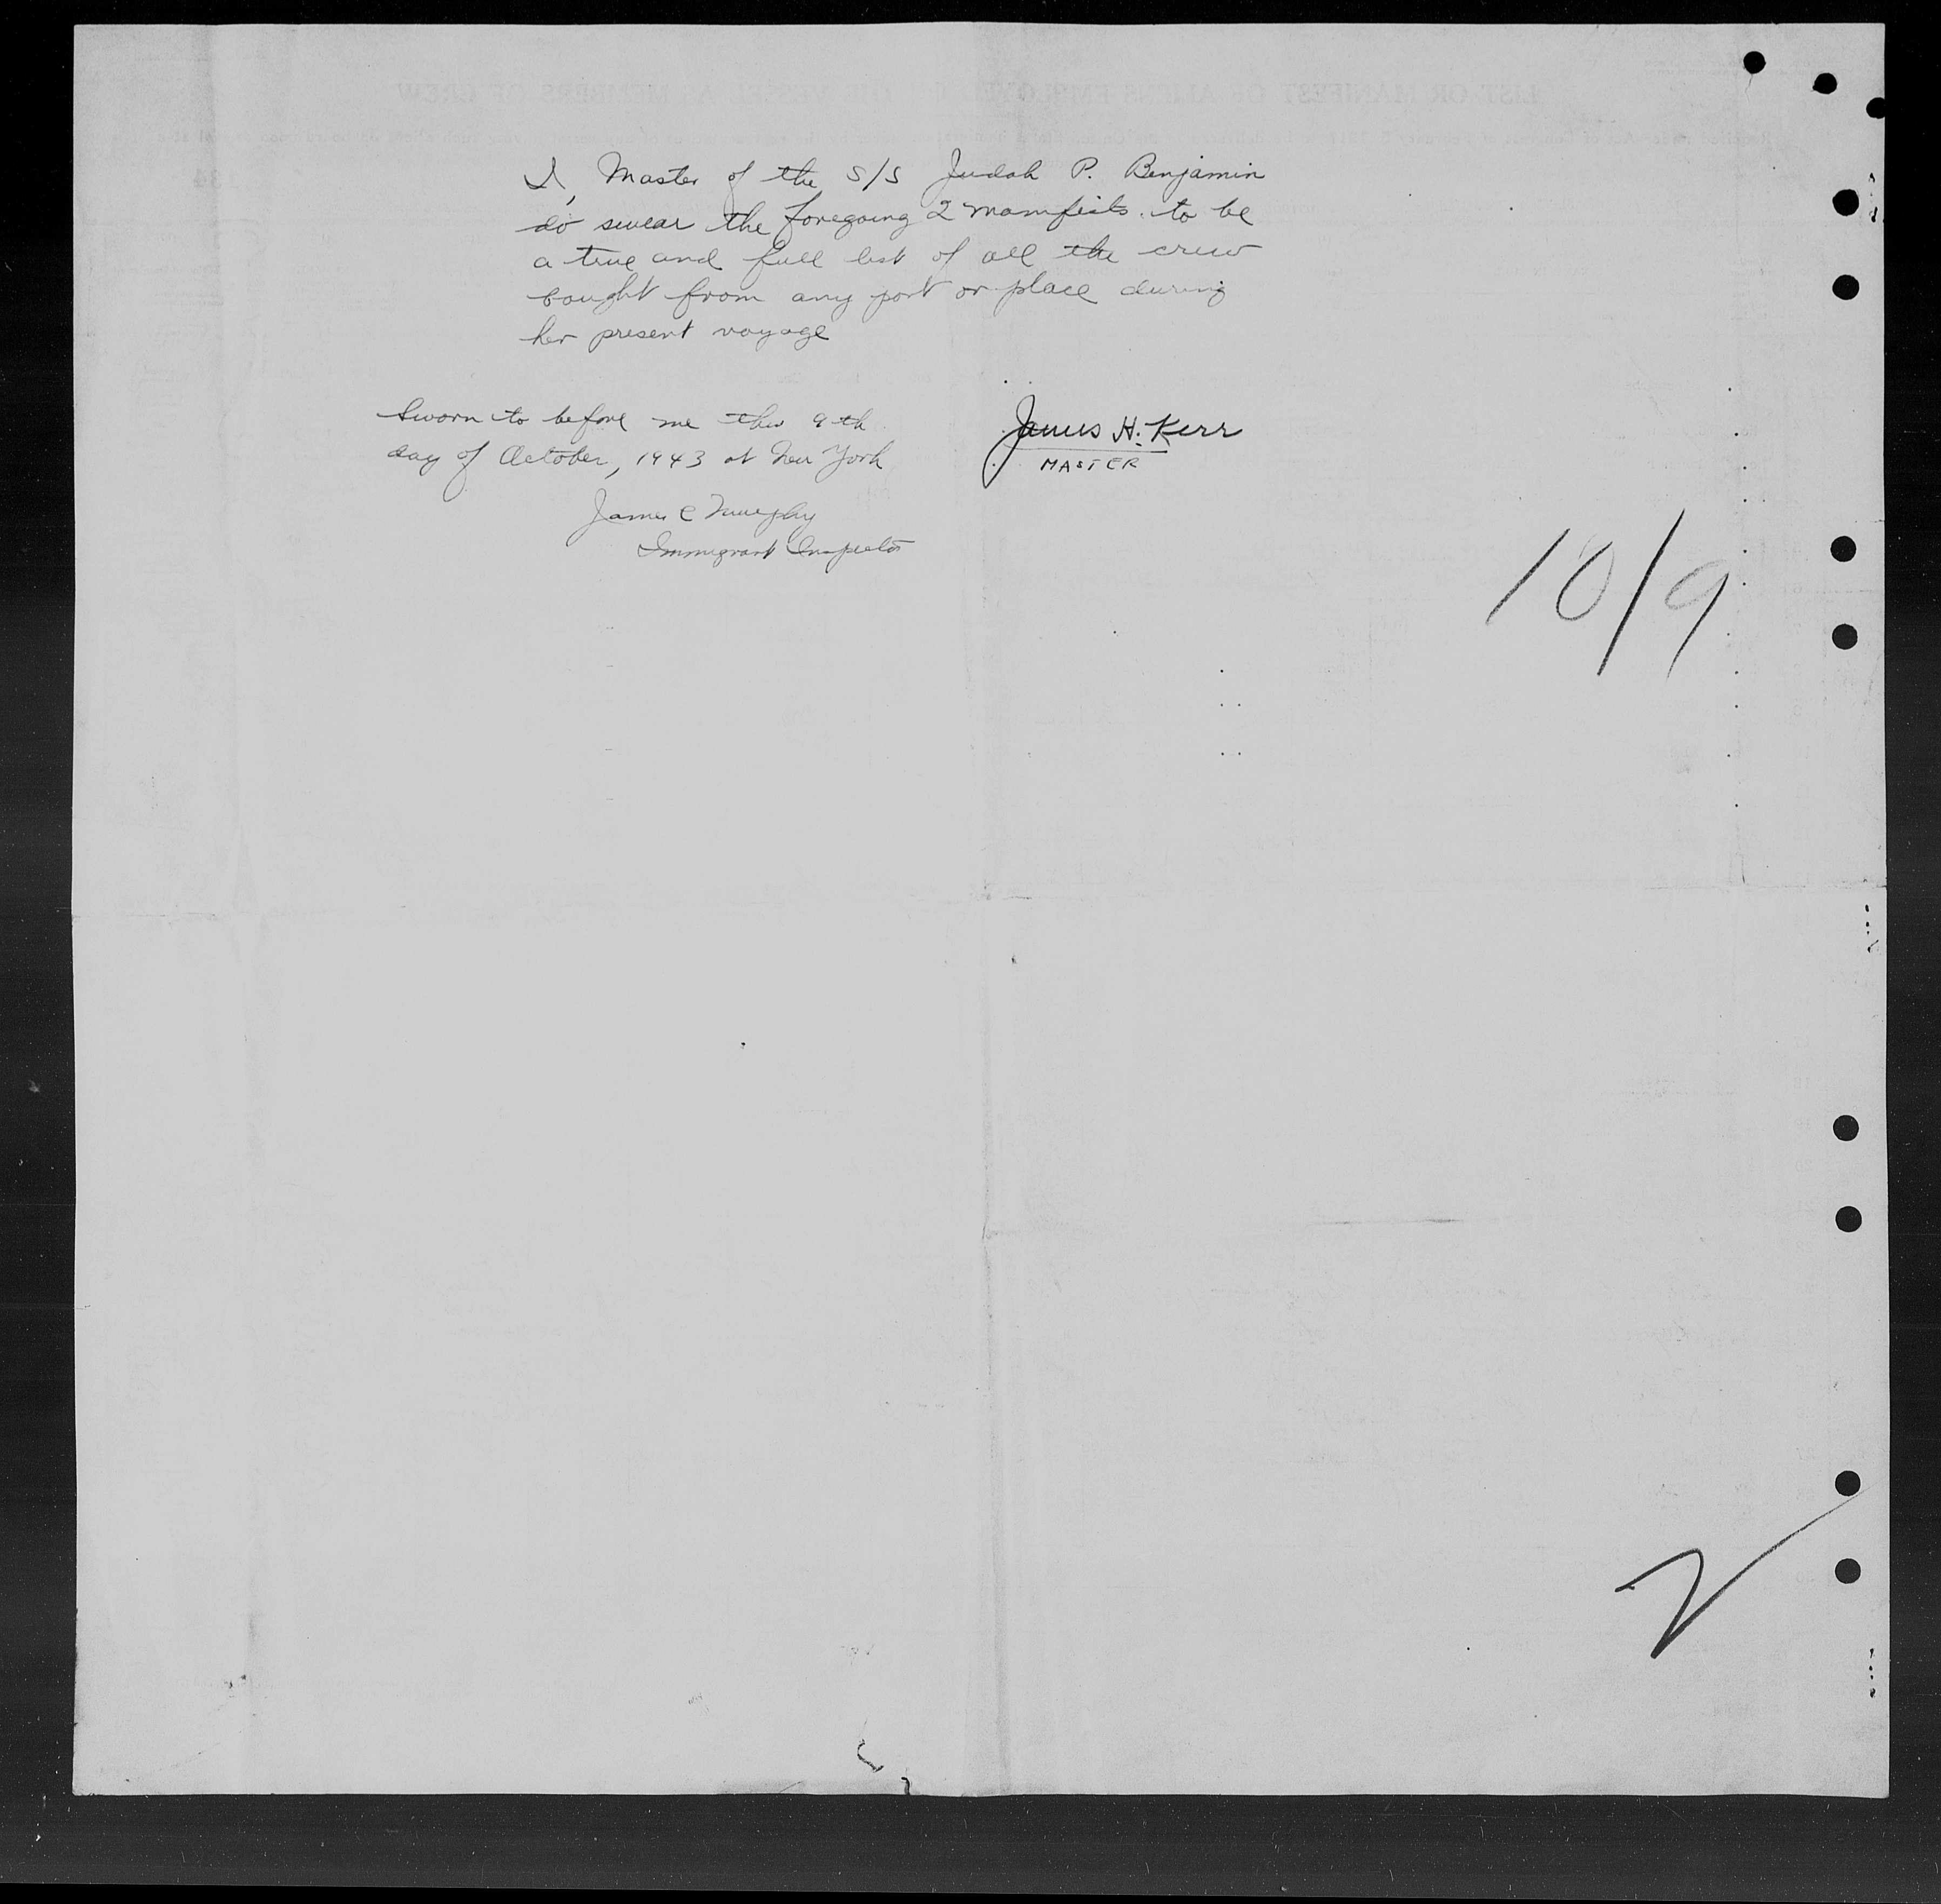 I, Master of the S/S Judah P. Benjamin
do swear the foregoing 2 manifests to be
a true and full list of all the crew
bought from any port or place during
her present voyage
Sworn to before me this 9th
day of October, 1943 at New York
James H. Kerr
MASTER
James C Murphy
Immigrant Inspector
10/9
2